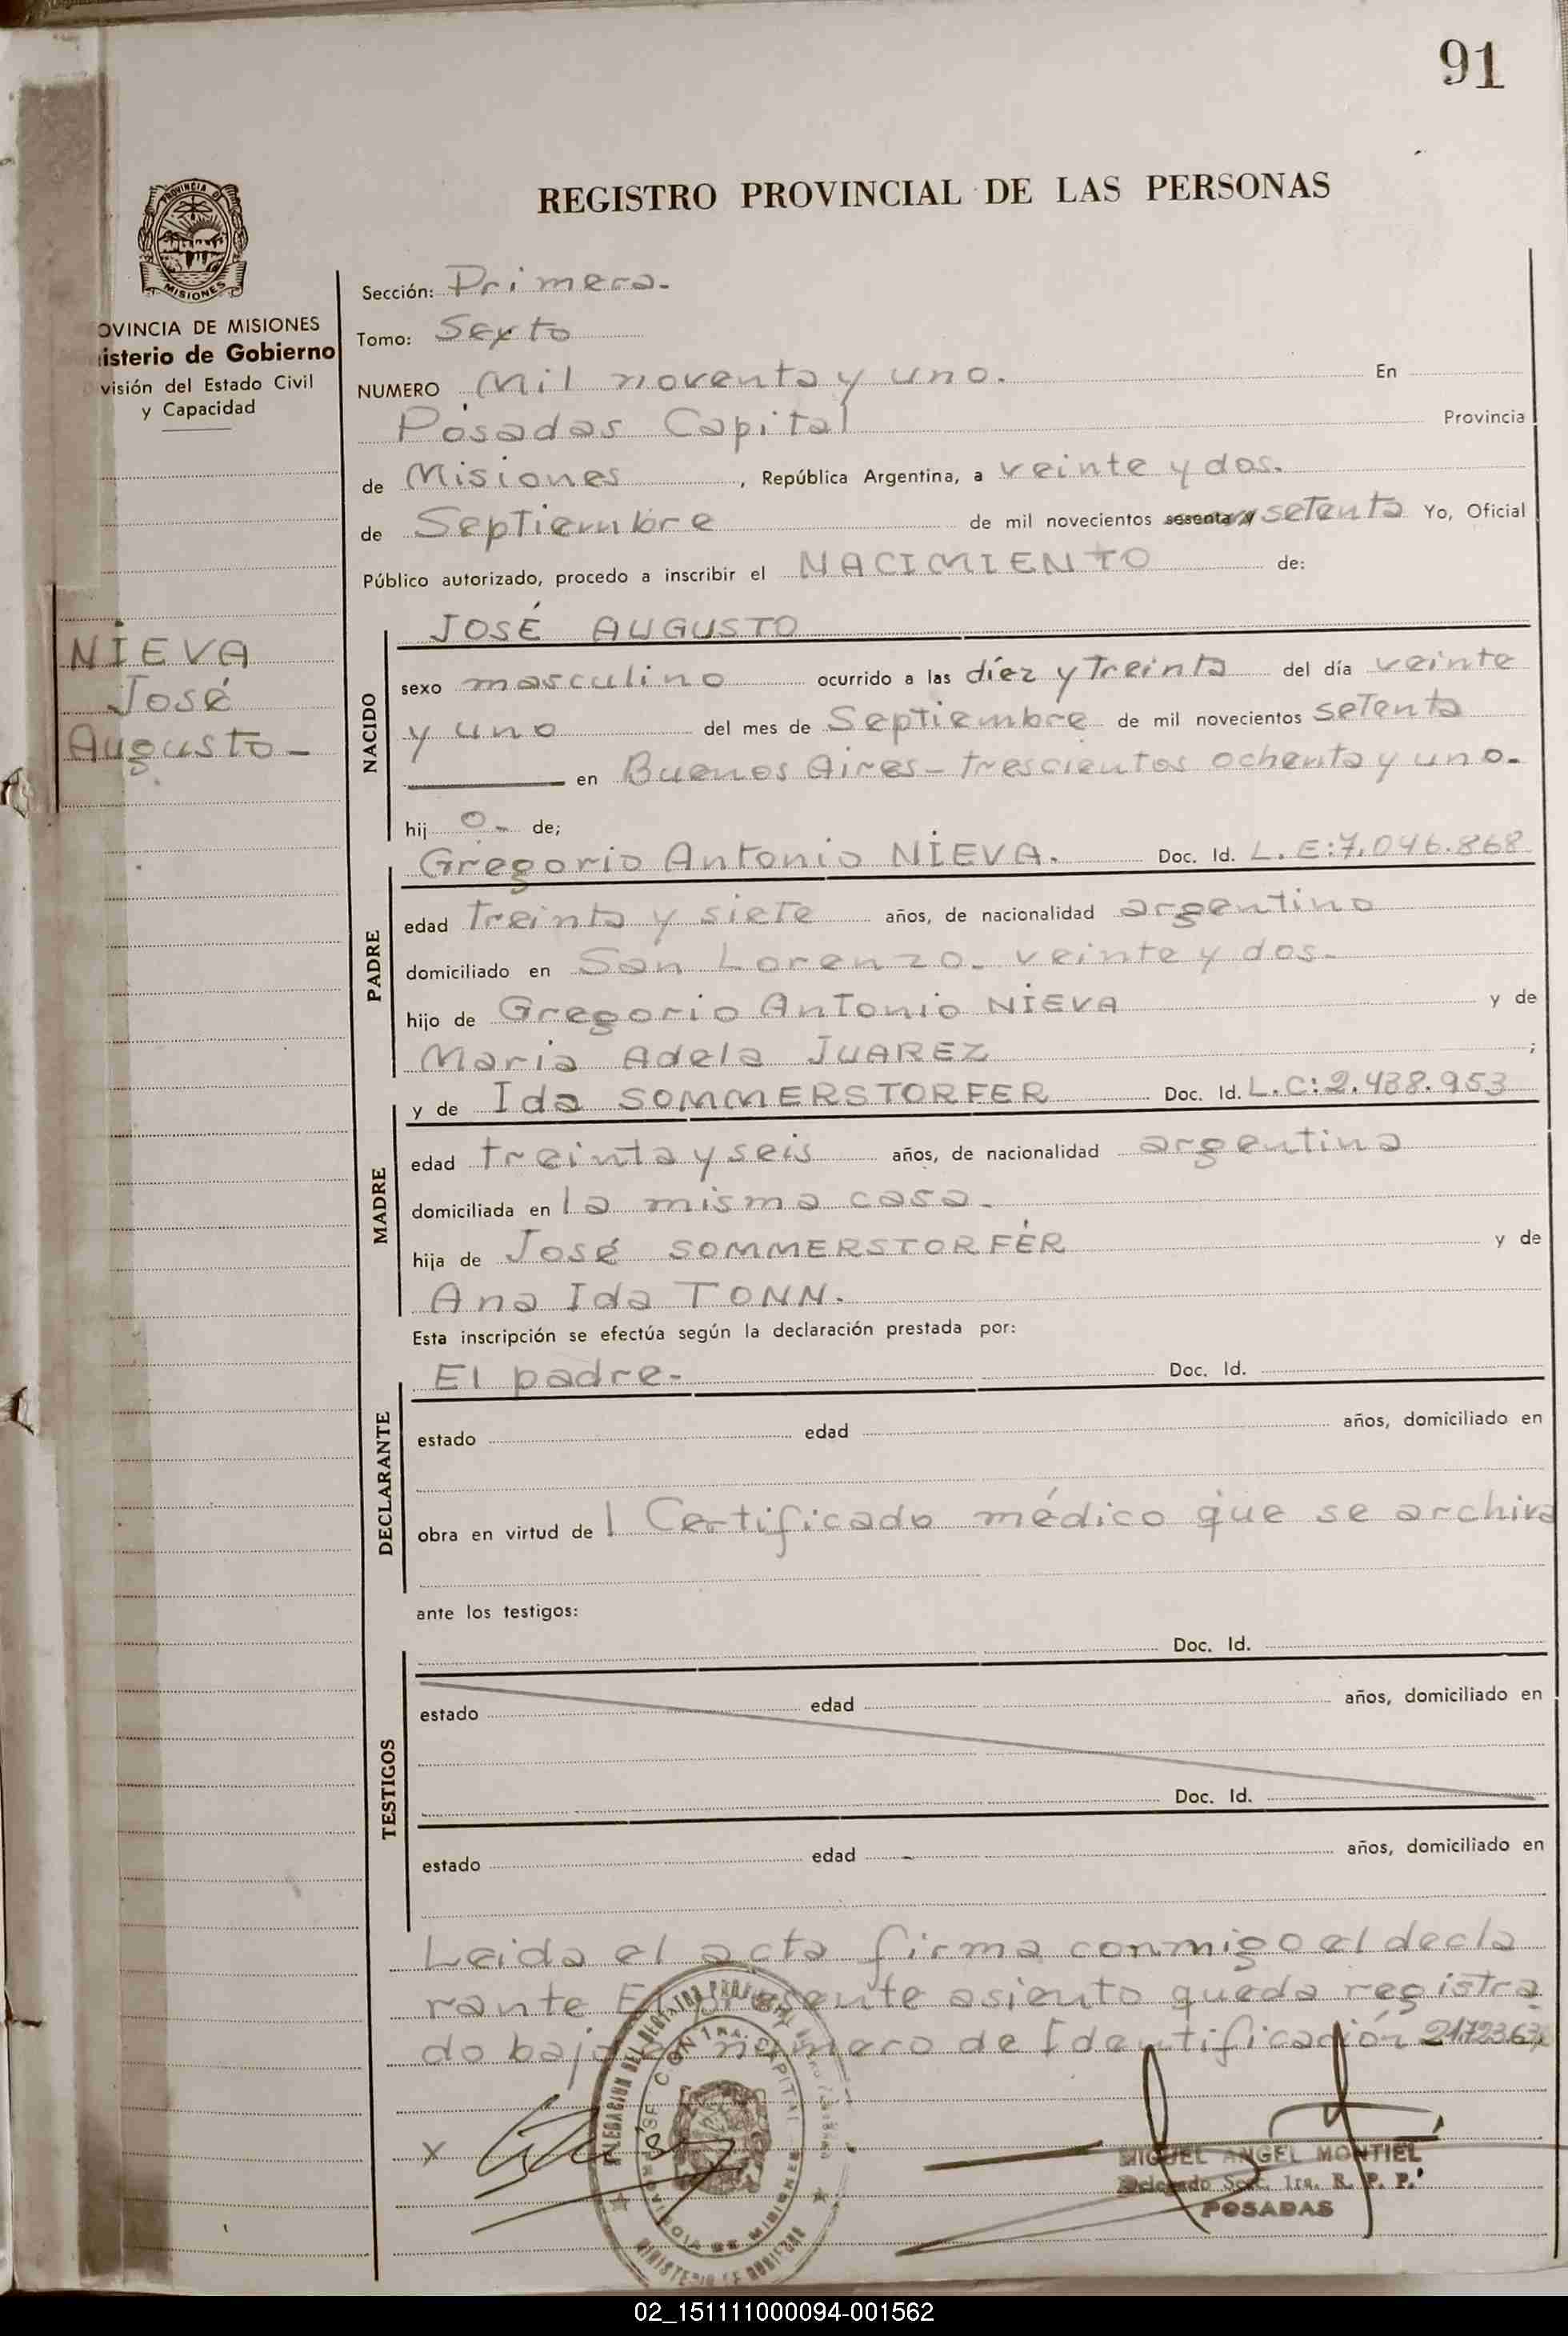 91
REGISTRO PROVINCIAL DE LAS PERSONAS
PROVINCIA D
MISIONES
OVINCIA DE MISIONES
isterio de Gobierno
visión del Estado Civil
y Capacidad
Sección: Primera.
Tomo: Sexto
NUMERO Mil noventa y uno. En
Posadas Capital Provincia
de Misiones, República Argentina, a veinte y dos.
de Septiembre de mil novecientos sesenta y setenta Yo, Oficial
Público autorizado, procedo a inscribir el NACIMIENTO de:
NIEVA
José
Augusto-
NACIDO
JOSÉ AUGUSTO
sexo masculino ocurrido a las díez y Treinta del día veinte
y uno del mes de Septiembre de mil novecientos seTenta
en Buenos Aires - trescientos ochenta y uno.
hij o- de;
PADRE
Gregorio Antonio NIEVA. Doc. Id. L.E:7.046.868
edad Treinta y siete años, de nacionalidad argentino
domiciliado en San Lorenzo. veinte y dos.
hijo de Gregorio Antonio NIEVA y de
Maria Adela JUAREZ ;
MADRE
y de Ida SOMMERSTORFER Doc. Id. L.C:2.438.953
edad treinta y seis años, de nacionalidad argentina
domiciliada en la misma casa.
hija de José SOMMERSTORFER y de
Ana Ida TONN.
Esta inscripción se efectúa según la declaración prestada por:
DECLARANTE
El padre- Doc. Id.
estado edad años, domiciliado en
obra en virtud de 1 Certificado médico que se archiva
ante los testigos:
TESTIGOS
Doc. Id.
estado edad años, domiciliado en
Doc. Id.
estado edad años, domiciliado en
Leida el acta firma conmigo el decla
rante El presente asiento queda registra
do bajo numero de Identificación
X
MIGUEL ANGEL MONTIEL
Delegado Sec. 1ra. R. P. P.
POSADAS
MINISTERIO DE GOBIERNO
02_151111000094-001562